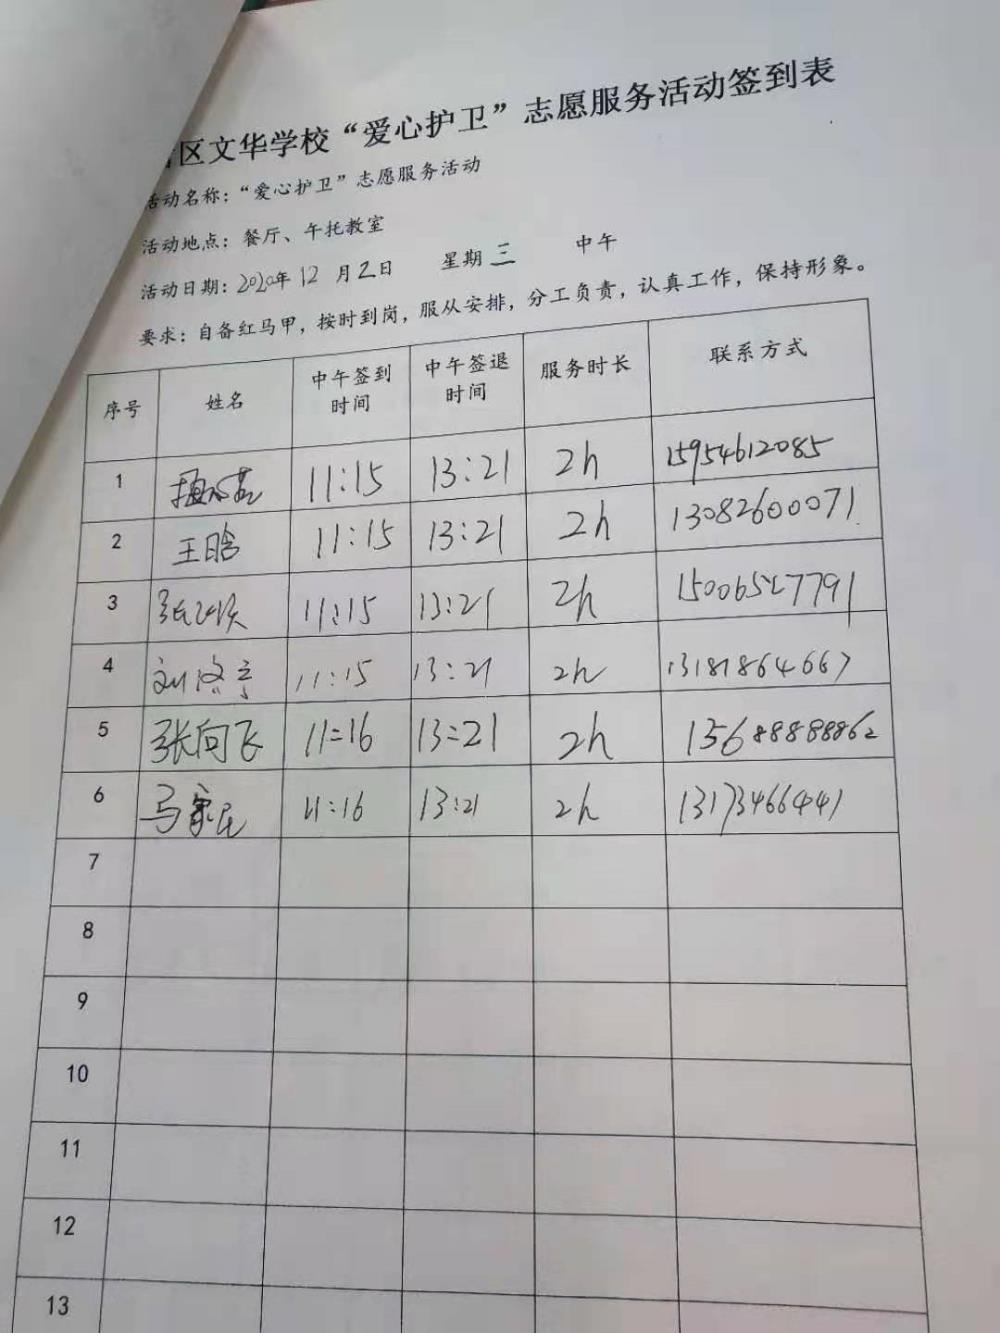 区文华学校“爱心护卫”志愿服务活动签到表
活动名称：“爱心护卫”志愿服务活动
活动地点：餐厅、午托教室
活动日期：2020年12月2日 星期三 中午
要求：自备红马甲，按时到岗，服从安排，分工负责，认真工作，保持形象。
序号 姓名 中午签到时间 中午签退时间 服务时长 联系方式
1 11:15 13:21 2h 15954612085
2 王晗 11:15 13:21 2h 13082600071
3 张 11:15 13:21 2h 15006527791
4 刘洛 11:15 13:21 2h 13181864667
5 张向飞 11:16 13:21 2h 13688888862
6 马家民 11:16 13:21 2h 13173466441
7
8
9
10
11
12
13